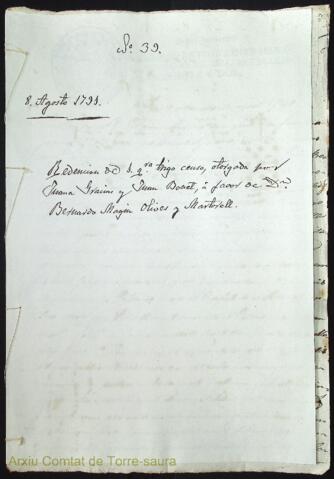 Nº 39.
8. Agosto 1793.
Redencion de 1. qra trigo censo, otorgada por
Juana Gracias y Juan Bonet, à favor de Dn.
Bernardo Magin Olives y Martorell.
Arxiu Comtat de Torre-saura